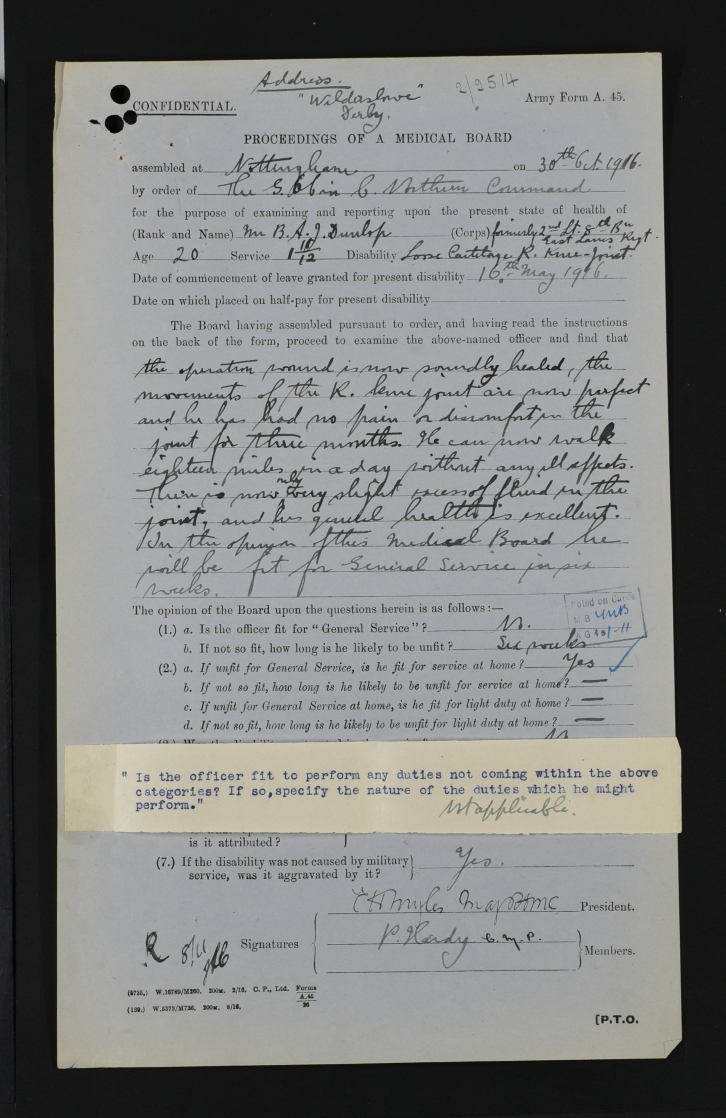 Address.
"Wildaslowe"
Derby.
2/2514
CONFIDENTIAL.
Army Form A. 45.
PROCEEDINGS OF A MEDICAL BOARD
assembled at Nottingham on 30th Oct. 1916.
by order of The G. O in C. Northern Command
for the purpose of examining and reporting upon the present state of health of
(Rank and Name) Mr B. A. J. Dunlop (Corps) formerly 2nd Lt. 8th Bn
East Lancs Regt.
Age 20 Service 1 10/12 Disability Loose Cartilage R. Knee-joint.
Date of commencement of leave granted for present disability 16th May 1916.
Date on which placed on half-pay for present disability
The Board having assembled pursuant to order, and having read the instructions
on the back of the form, proceed to examine the above-named officer and find that
the operation wound is now soundly healed, the
movements of the R. knee joint are now perfect
and he has had no pain or discomfort in the
joint for three months. He can now walk
eighteen miles in a day without any ill effects.
There is now only very slight excess of fluid in the
joint, and his general health is excellent.
In the opinion of this Medical Board he
will be fit for General Service in six
weeks.
The opinion of the Board upon the questions herein is as follows:—
Noted on Cards
M B
(1.) a. Is the officer fit for "General Service"? No.
b. If not so fit, how long is he likely to be unfit? Six weeks
(2.) a. If unfit for General Service, is he fit for service at home? Yes
b. If not so fit, how long is he likely to be unfit for service at home? —
c. If unfit for General Service at home, is he fit for light duty at home? —
d. If not so fit, how long is he likely to be unfit for light duty at home? —
" Is the officer fit to perform any duties not coming within the above
categories? If so,specify the nature of the duties which he might
perform."
Not applicable.
is it attributed?
(7.) If the disability was not caused by military
service, was it aggravated by it? Yes.
President.
Signatures
P. Hardy C. M. P.
Members.
R 8/11/16
(8725.) W.16789/M260. 200M. 2/16. C. P., Ltd. Forms A.45 26
(139.) W.5373/M736. 200M. 8/16.
[P.T.O.